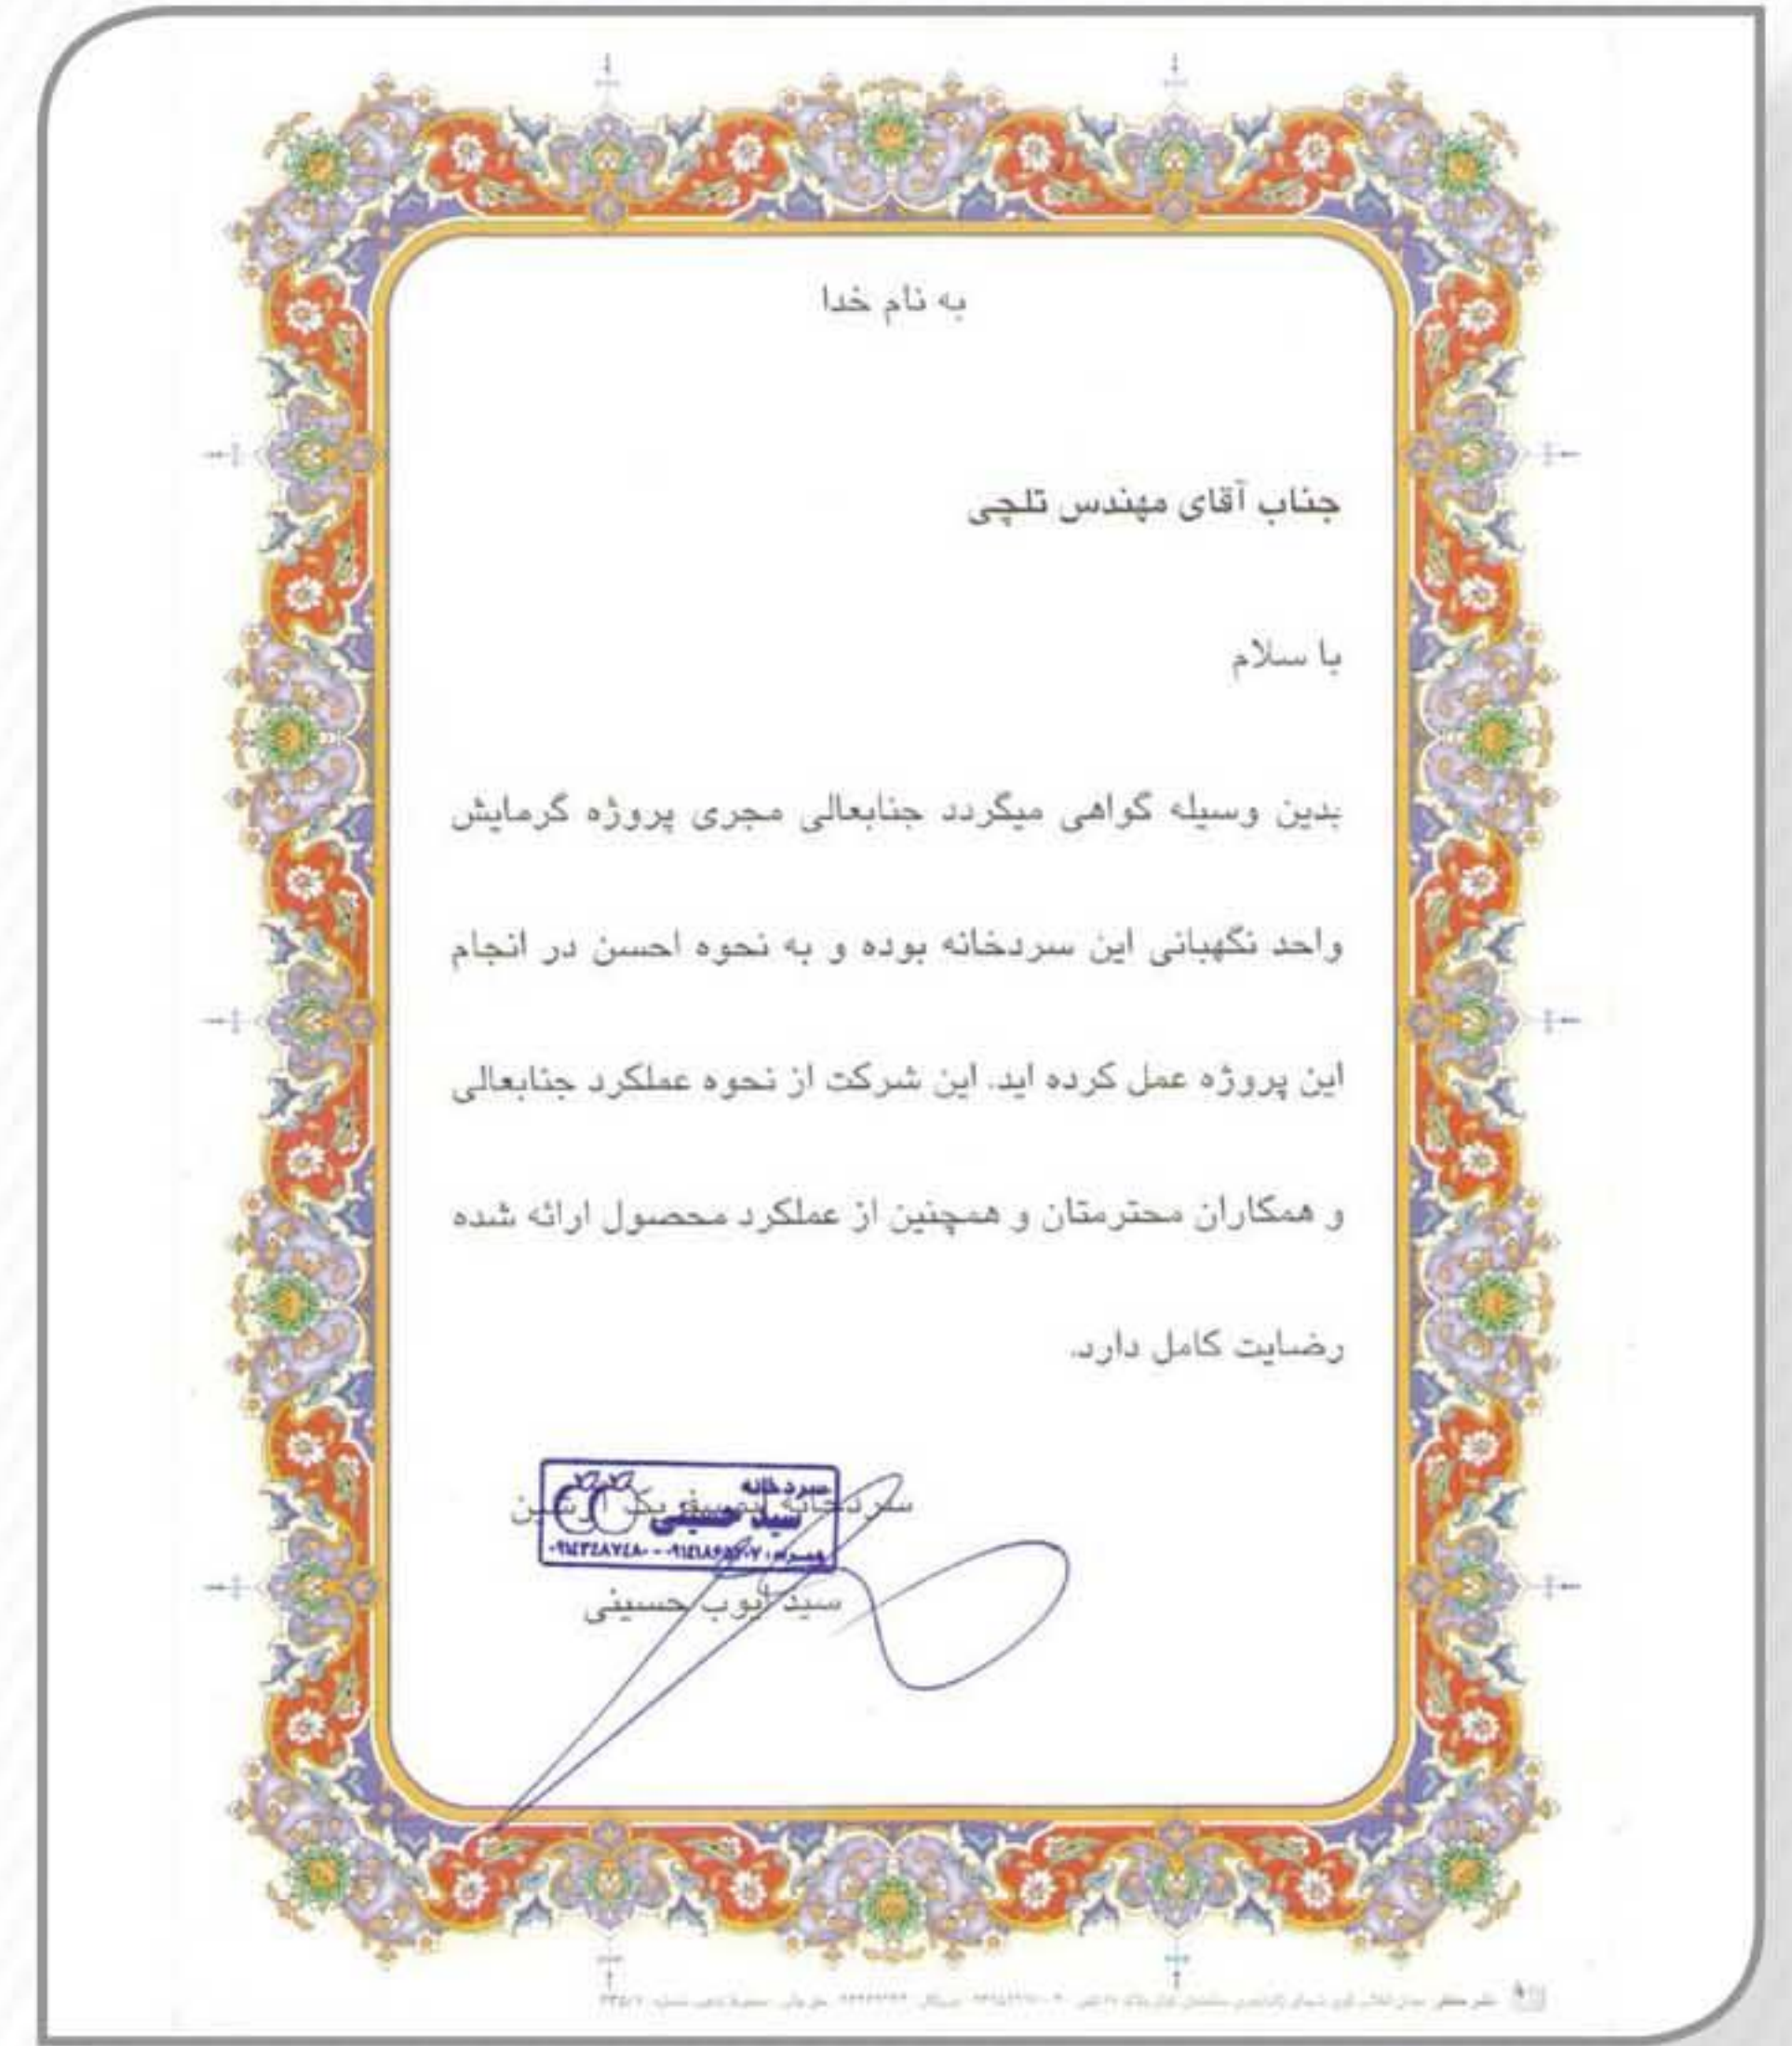 به نام خدا
جناب آقای مهندس تلچی
با سلام
بدین وسیله گواهی میگردد جنابعالی مجری پروژه گرمایش
واحد نگهبانی این سردخانه بوده و به نحوه احسن در انجام
این پروژه عمل کرده اید. این شرکت از نحوه عملکرد جنابعالی
و همکاران محترمتان و همچنین از عملکرد محصول ارائه شده
رضایت کامل دارد.
سردخانه
سید حسینی
سردخانه
سید ایوب حسینی